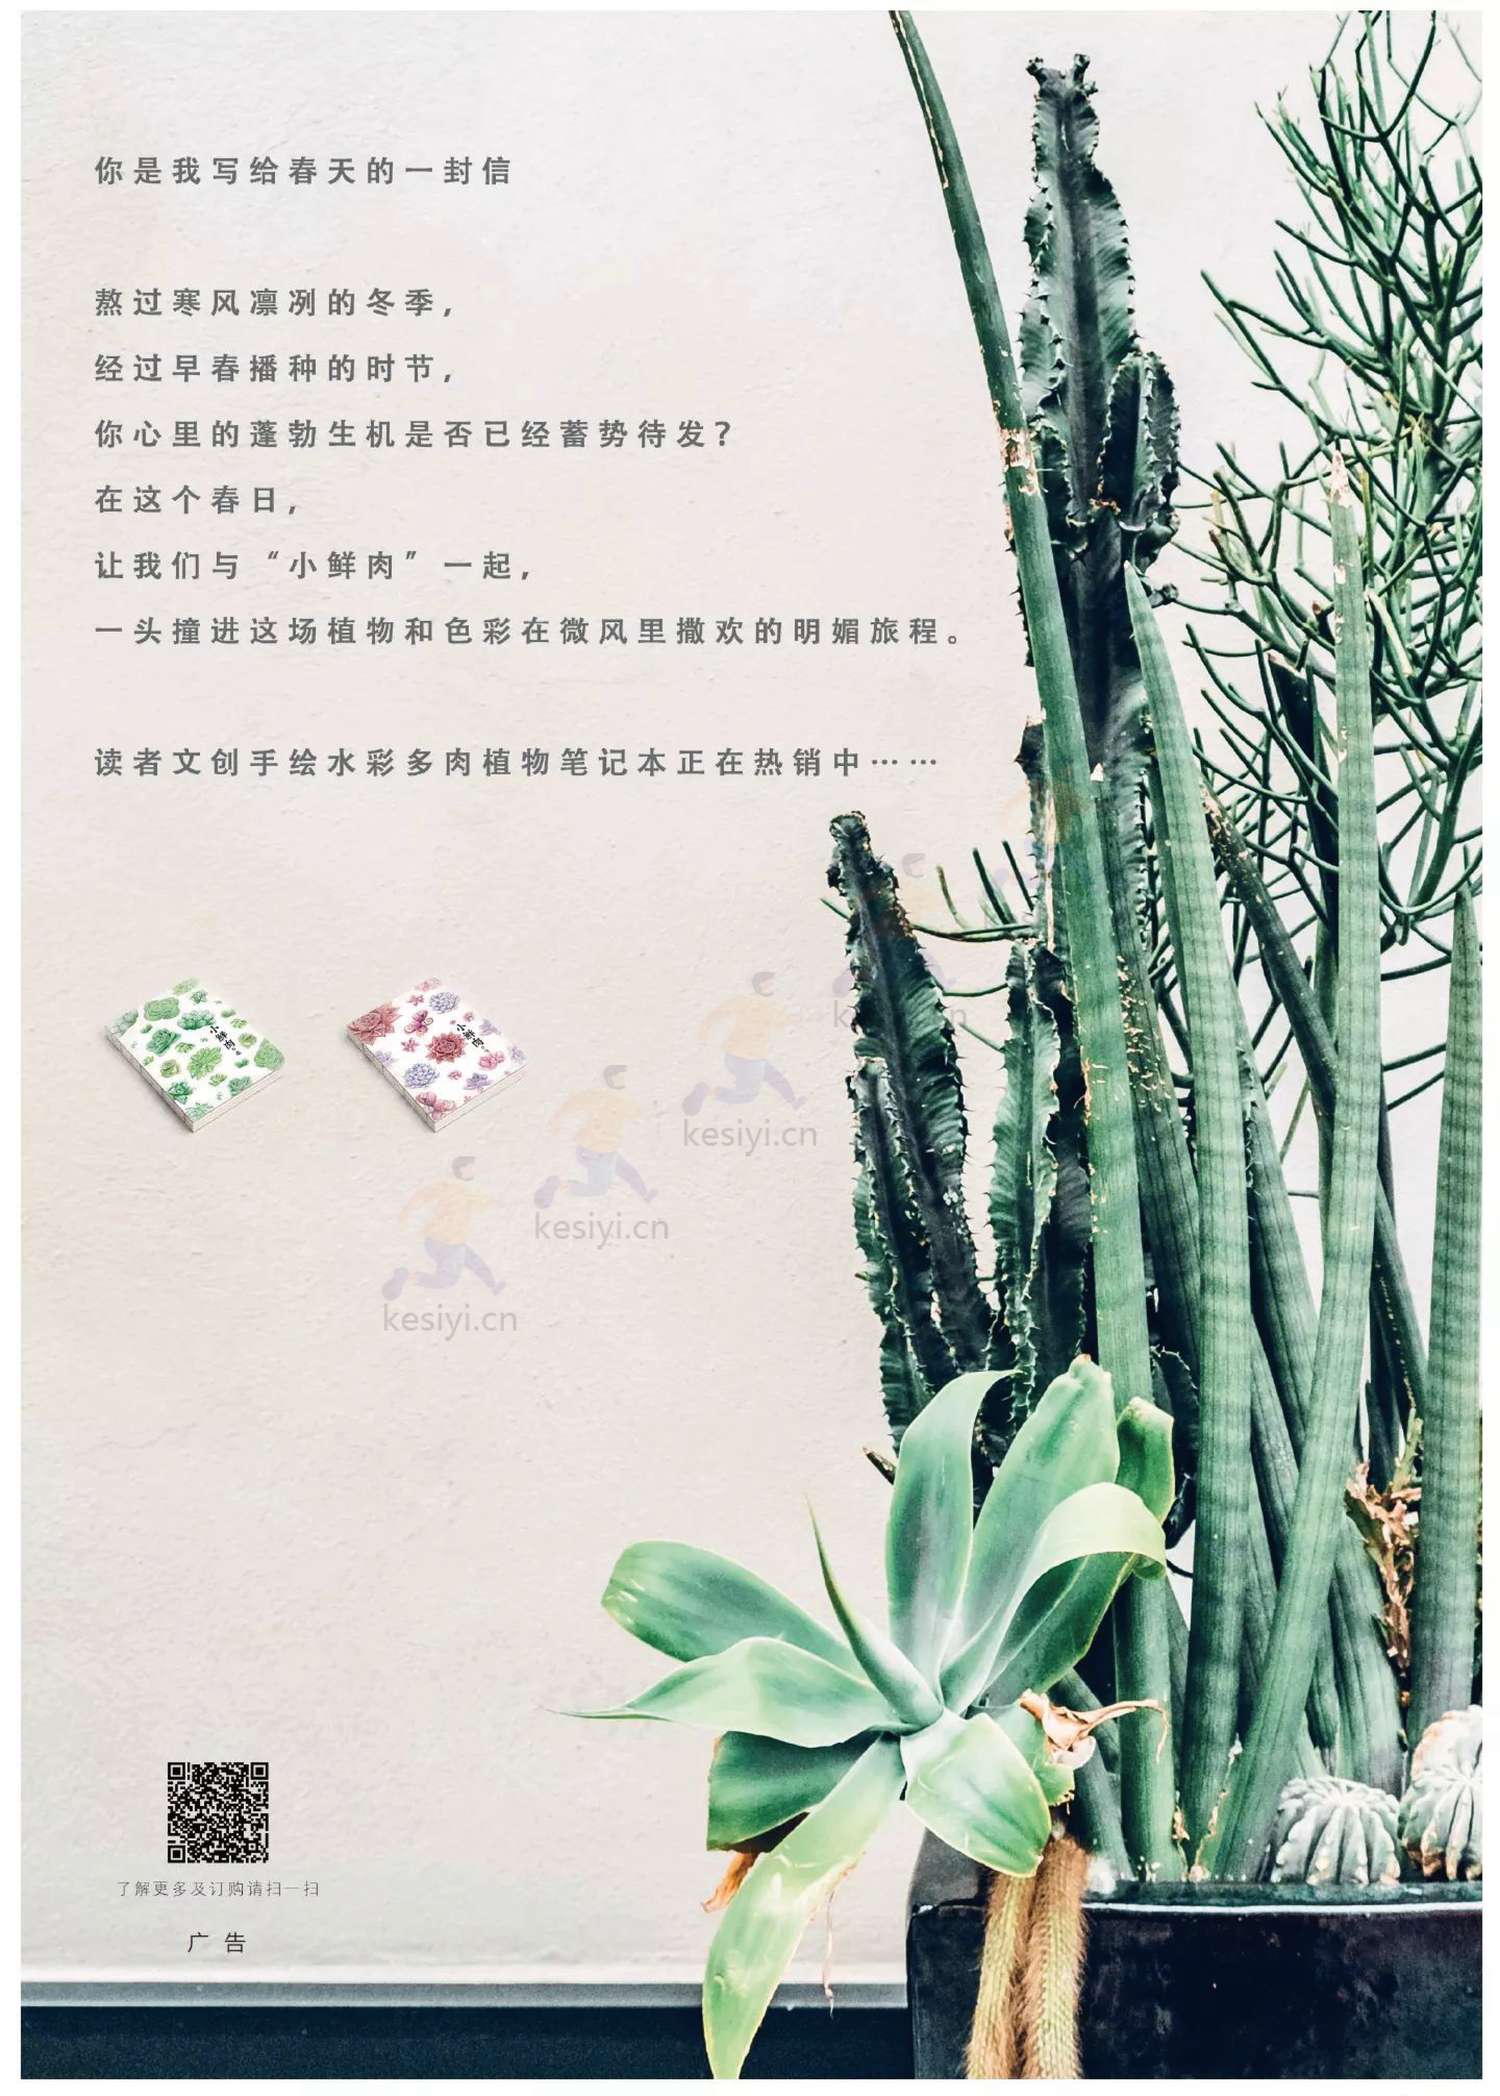 你是我写给春天的一封信
熬过寒风凛冽的冬季，
经过早春播种的时节，
你心里的蓬勃生机是否已经蓄势待发？
在这个春日，
让我们与“小鲜肉”一起，
一头撞进这场植物和色彩在微风里撒欢的明媚旅程。
读者文创手绘水彩多肉植物笔记本正在热销中……
小鲜肉
小鲜肉
kesiyi.cn
kesiyi.cn
kesiyi.cn
kesiyi.cn
了解更多及订购请扫一扫
广告